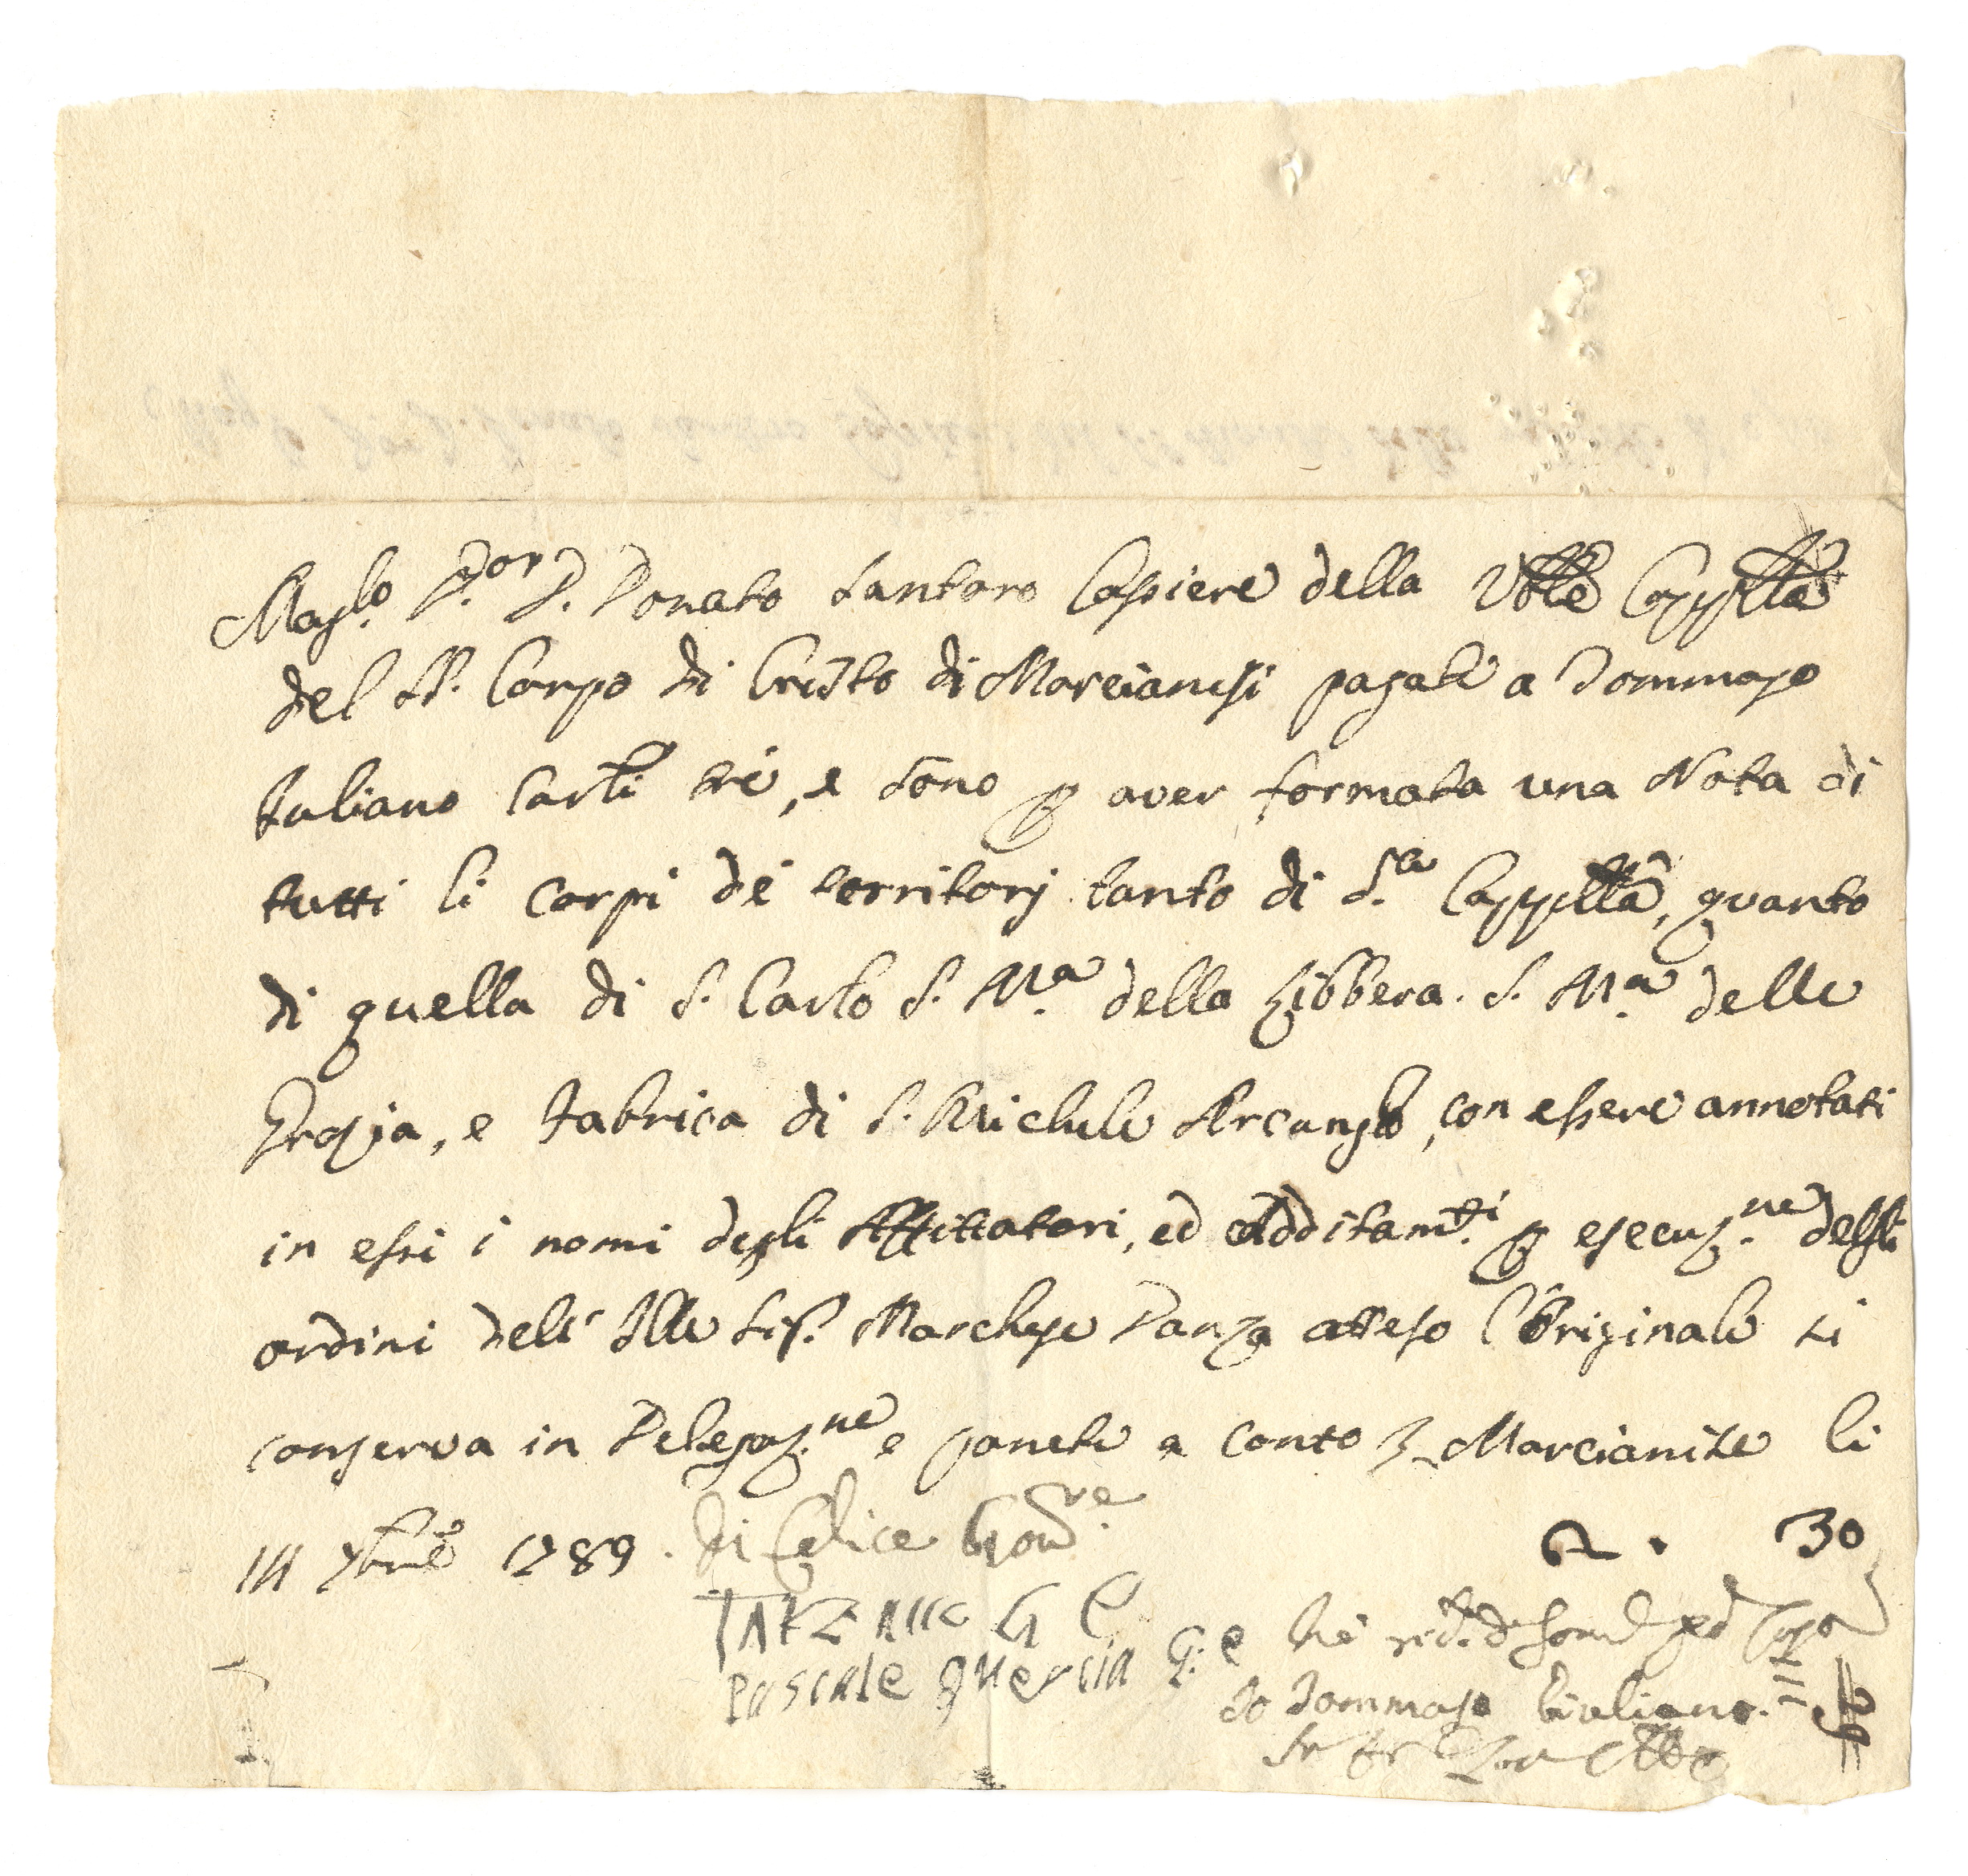 Mag.co D.or D. Donato Santoro Cassiere della Vble Cappella
del SS. Corpo di Cristo di Marcianisi pagate a Tommaso
Iuliano Carli tre, e sono p aver formata una Nota di
tutti li corpi de territorj tanto di d.a Cappella, quanto
di quella di S. Carlo S. M.a della Libbera. S. M.a delle
Grazia, e fabrica di S. Michele Arcanglo, con essere annotati
in essi i nomi degli Affittatori, ed additam.ti p esecuz.ne degli
ordini dell' Ille Sig. Marchese Danza atteso l'Originale si
conserva in Delegaz.ne e ponete a conto Marcianise li
14 7bre 1789. Di Felice Gov.re
30
Pascale Quercia G: e
Io Tommaso Giuliano